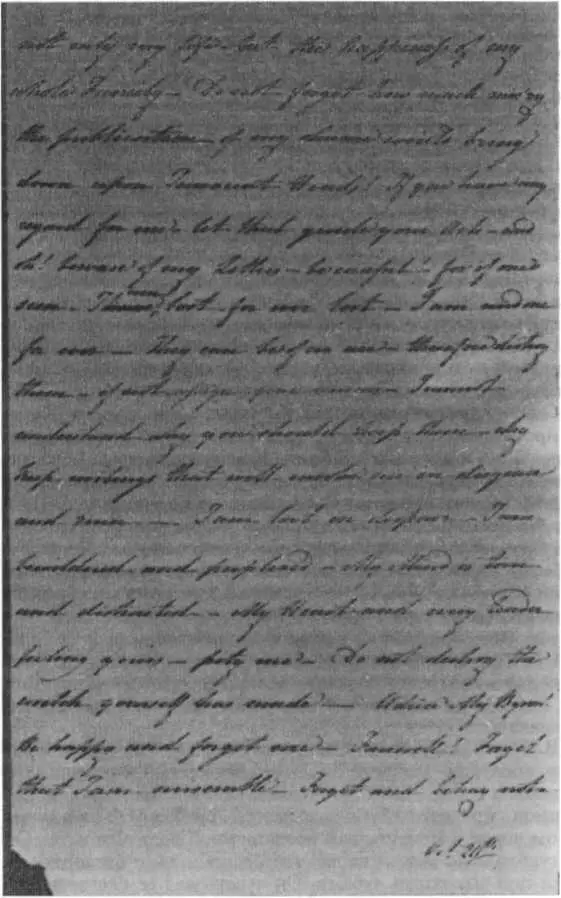 not only my life but the happiness of my
whole Family - Do not forget how much misery
the publication of my shame would bring
down upon Innocent Heads! If you have any
regard for me let that guide your Acts - and
oh! beware of my Letters - be careful! - for if one
seen - I am lost - for ever lost - I am undone
for ever - they can be of no use - therefore destroy
them - if not I cannot
understand why you should keep them - why
keep writings that will involve me in disgrace
and ruin - I am lost in despair - I am
bewildered and perplexed - My Mind is torn
and distracted - My Heart and every tender
feeling yours - pity me - Do not destroy the
wretch yourself has made - Adieu My Byron!
Be happy and forget me - Farewell! Forget
that I am miserable - Forget and betray not -
Oct 29th